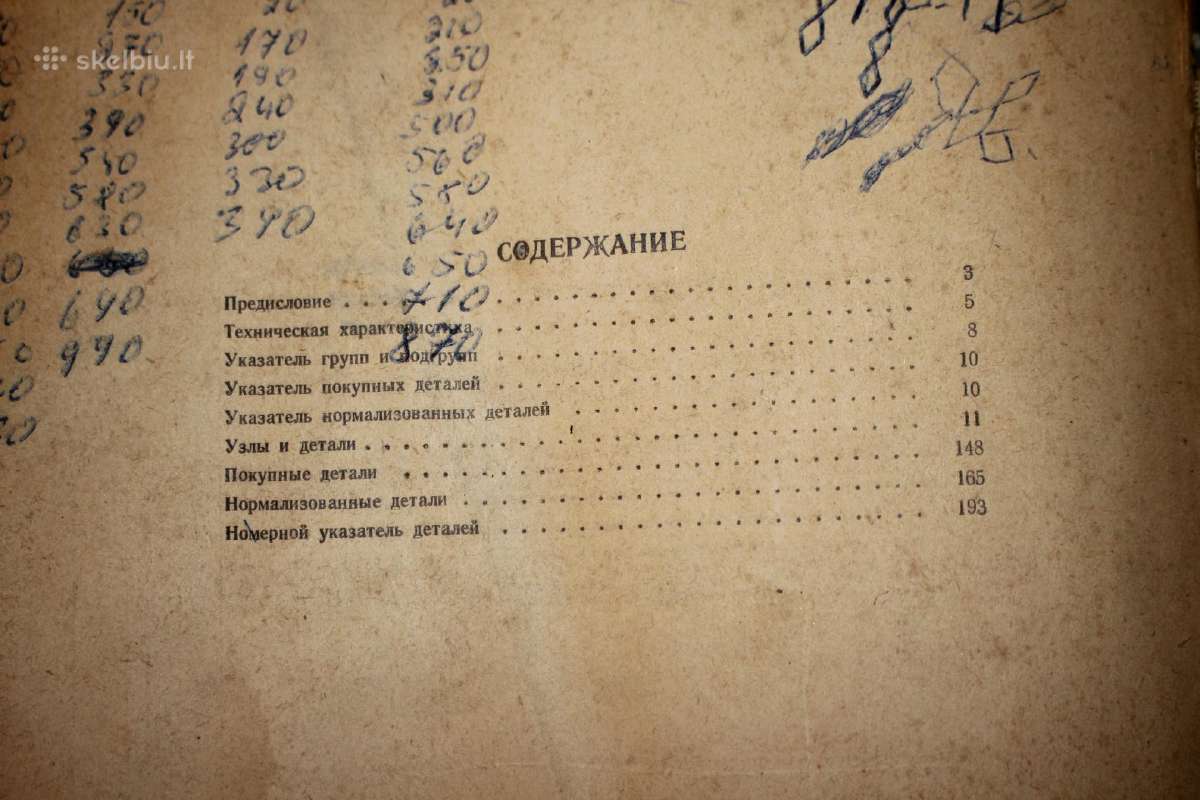 150 20
skelbiu.lt 170 210
330 190 250
390 240 310
540 300 500
580 330 560
630 390 580
640
СОДЕРЖАНИЕ
650
690 710
990 870
Предисловие 3
Техническая характеристика 5
Указатель групп и подгрупп 8
Указатель покупных деталей 10
Указатель нормализованных деталей 10
Узлы и детали 11
Покупные детали 148
Нормализованные детали 165
Номерной указатель деталей 193